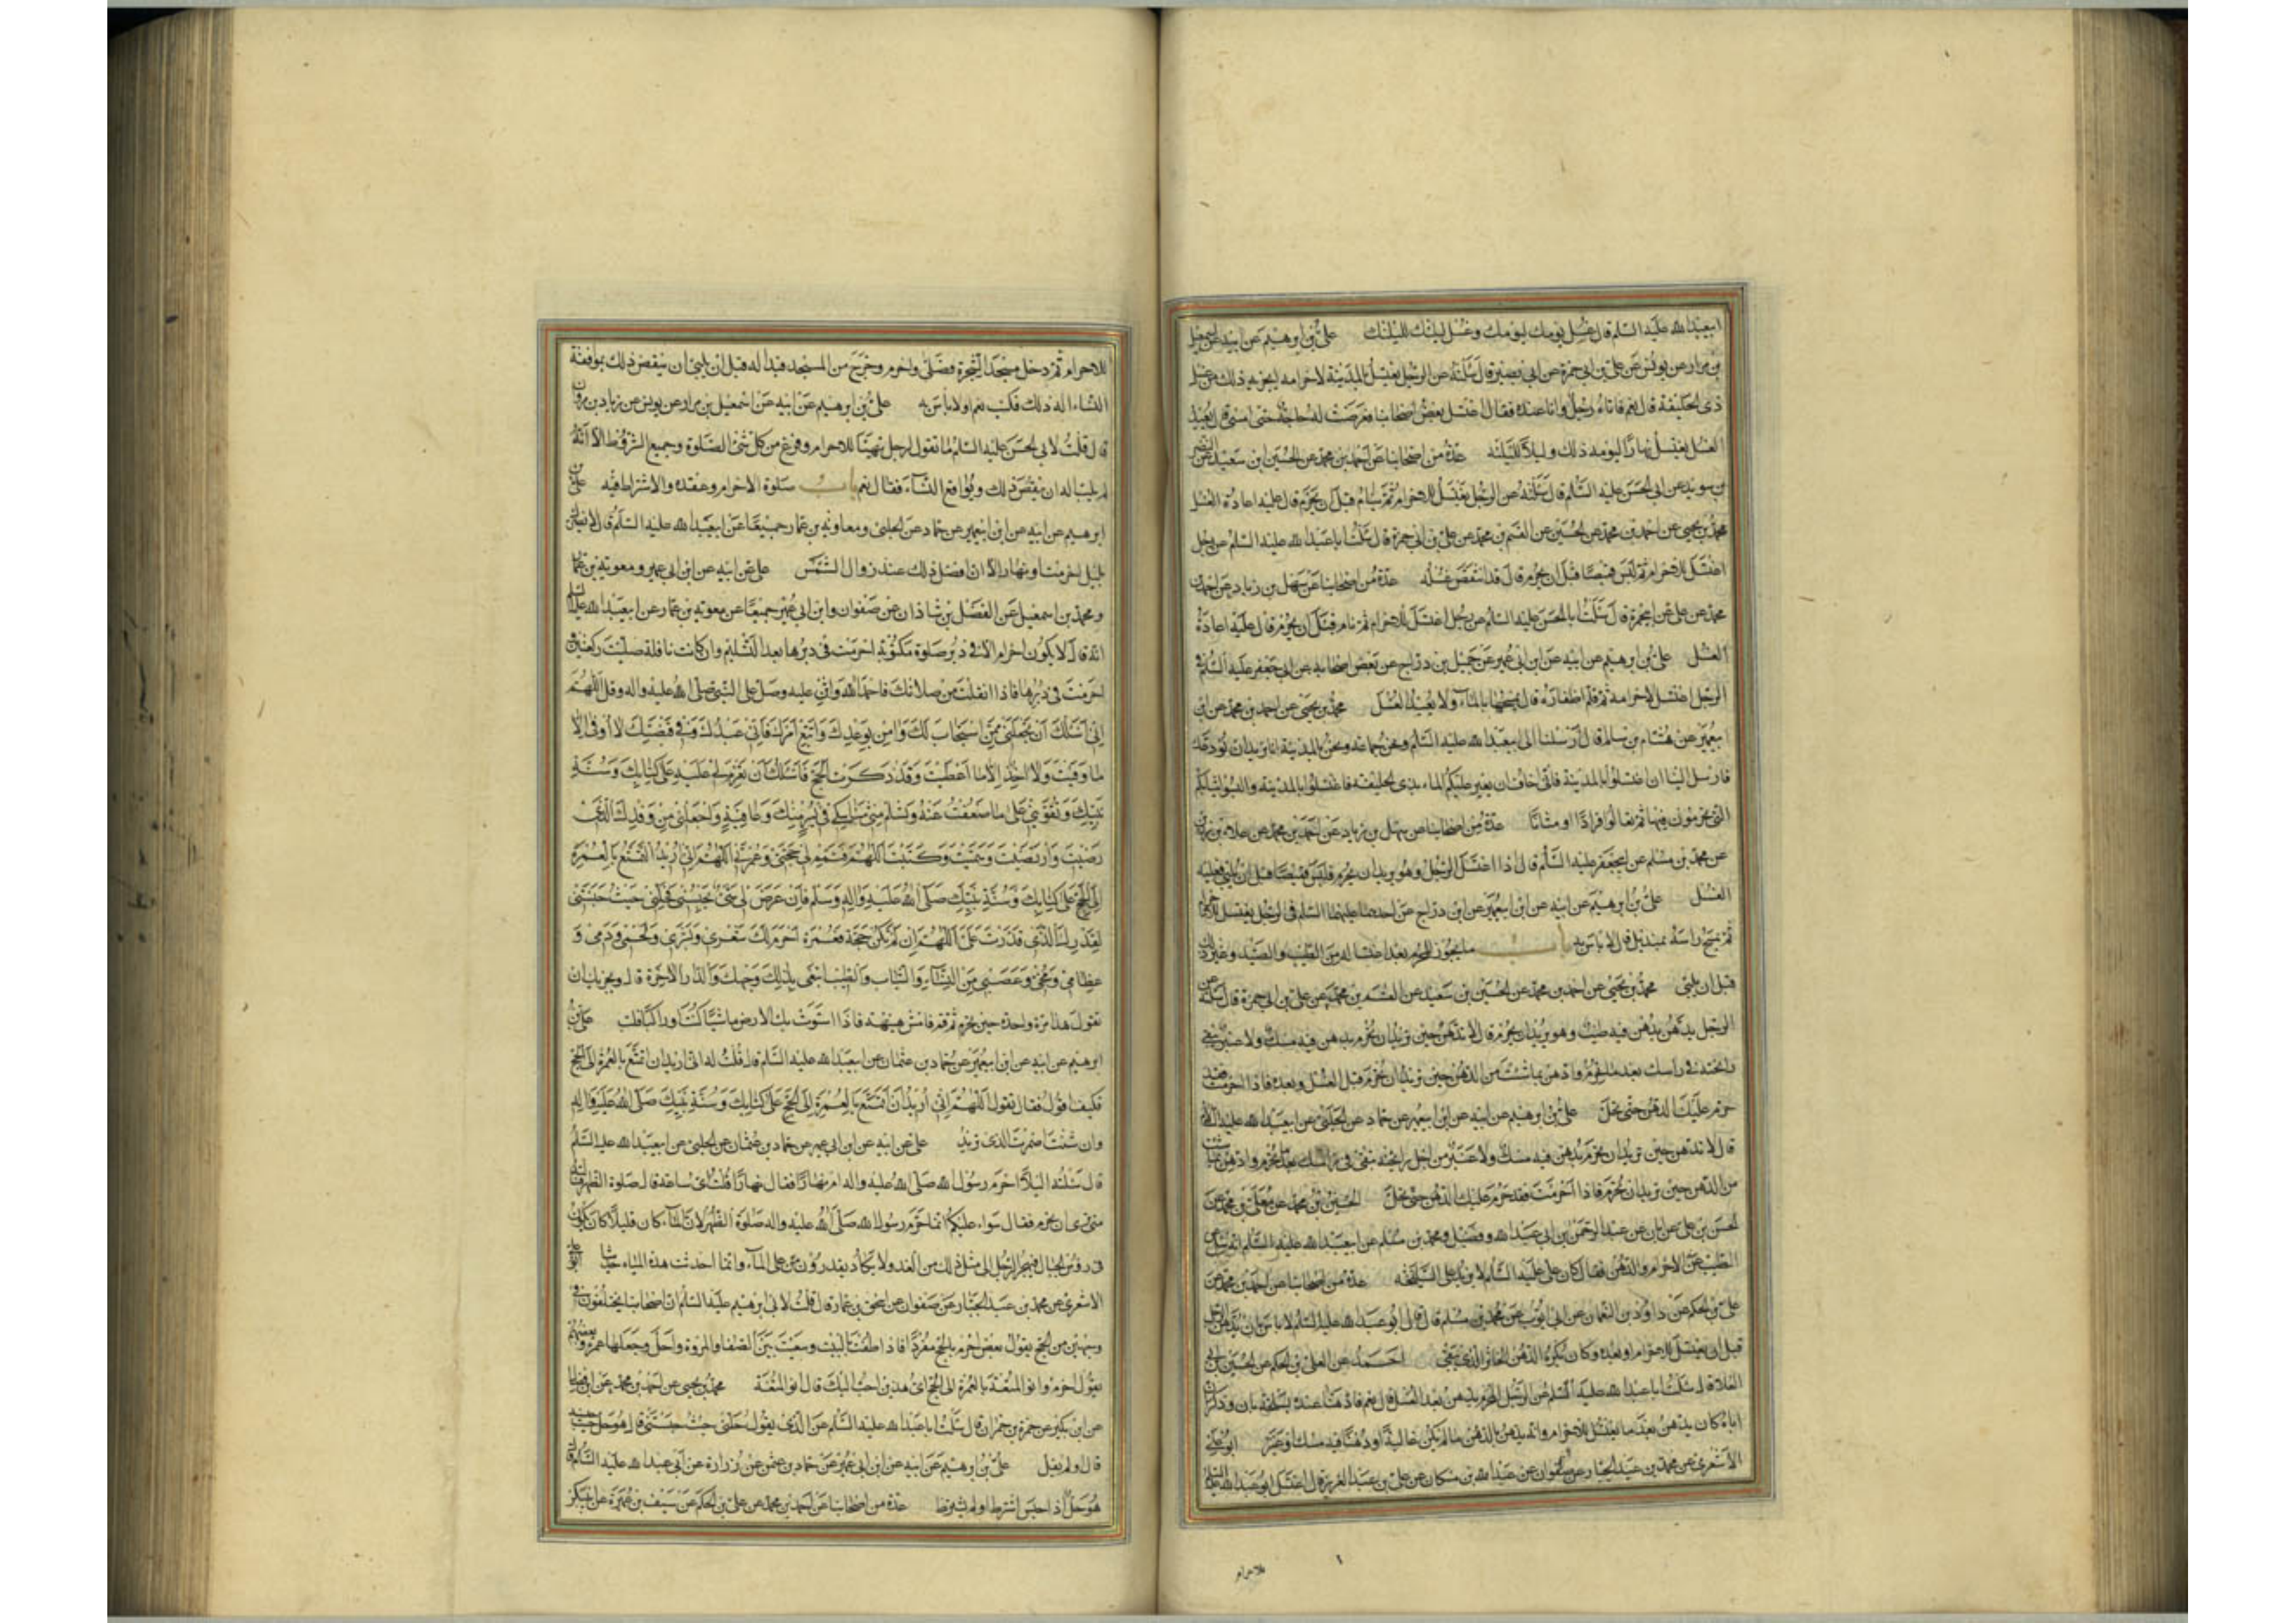 ابيعبد الله عليه السلم قال غسل يومك ليومك وغسل ليلتك لليلتك علي بن ابرهيم عن ابيه عن اسمعيل
بن مرار عن يونس عن علي بن ابي حمزة عن ابي بصير قال سألته عن الرجل يغتسل بالمدينة لاحرامه ايجزيه ذلك من غسل
ذي الحليفة قال نعم فاتاه رجل وانا عنده فقال اغتسل بعض اصحابنا فعرضت له حاجة حتى امسى قال يعيد
الغسل يغتسل نهارا ليومه ذلك وليلا لليلته عدة من اصحابنا عن احمد بن محمد عن الحسين ابن سعيد عن النضر
بن سويد عن ابي الحسن عليه السلم قال سألته عن الرجل يغتسل للاحرام ثم ينام قبل ان يحرم قال عليه اعادة الغسل
محمد بن يحيى عن احمد بن محمد عن الحسين عن القسم بن محمد عن علي بن ابي حمزة قال سئلت ابا عبد الله عليه السلم عن رجل
اغتسل للاحرام ثم لبس قميصا قبل ان يحرم قال قد انتقض غسله عدة من اصحابنا عن سهل بن زياد عن احمد بن
محمد عن علي بن ابيحمزة قال سئلت ابا الحسن عليه السلم عن رجل اغتسل للاحرام ثم نام قبل ان يحرم قال عليه اعادة
الغسل علي بن ابرهيم عن ابيه عن ابن ابي عمير عن جميل بن دراج عن بعض اصحابه عن ابي جعفر عليه السلم في
الرجل اغتسل لاحرامه ثم قلم اظفاره قال يمسحها بالماء ولا يعيد الغسل محمد بن يحيى عن احمد بن محمد عن ابن
ابيعمير عن هشام بن سالم قال ارسلنا الى ابيعبد الله عليه السلم ونحن جماعة ونحن بالمدينة انا نريد ان نودعك
فارسل الينا ان اغتسلوا بالمدينة فاني اخاف ان يعسر عليكم الماء بذي الحليفة فاغتسلوا بالمدينة والبسوا ثيابكم
التي تحرمون فيها ثم تعالوا فرادا او مثانا عدة من اصحابنا عن سهل بن زياد عن احمد بن محمد عن علاء بن رزين
عن محمد بن مسلم عن ابيجعفر عليه السلم قال اذا اغتسل الرجل وهو يريد ان يحرم فلبس قميصا قبل ان يلبي فعليه
الغسل علي بن ابرهيم عن ابيه عن ابن ابيعمير عن ابن دراج عن احدهما عليهما السلم في الرجل يغتسل للاحرام
ثم يمسح راسه بمنديل قال لا باس به باب ما يجوز للمحرم بعد اغتساله من الطيب والصيد وغير ذلك
قبل ان يلبي محمد بن يحيى عن احمد بن محمد عن الحسين بن سعيد عن القسم بن محمد عن علي بن ابي حمزة قال سألته عن
الرجل يدهن بدهن فيه طيب وهو يريد ان يحرم قال لا تدهن حين تريد ان تحرم بدهن فيه مسك ولا عنبر تبقى
رائحته في راسك بعد ما تحرم وادهن بما شئت من الدهن حين تريد ان تحرم قبل الغسل وبعده فاذا احرمت فقد
حرم عليك الدهن حتى تحل علي بن ابرهيم عن ابيه عن ابن ابيعمير عن حماد عن الحلبي عن ابيعبد الله عليه السلم
قال لا تدهن حين تريد ان تحرم بدهن فيه مسك ولا عنبر من اجل رائحته تبقى في راسك بعد ما تحرم وادهن بما شئت
من الدهن حين تريد ان تحرم فاذا احرمت فقد حرم عليك الدهن حتى تحل الحسين بن محمد عن معلى بن محمد عن
الحسن بن علي عن ابان عن عبد الرحمن بن ابي عبد الله وفضيل ومحمد بن مسلم عن ابيعبد الله عليه السلم انه سئل عن
الطيب عند الاحرام والدهن فقال كان علي عليه السلم لا يزيد على السليخة عدة من اصحابنا عن احمد بن محمد عن
علي بن الحكم عن داود بن النعمان عن ابي ايوب عن محمد بن مسلم قال قال ابو عبد الله عليه السلم لا باس بان يدهن الرجل
قبل ان يغتسل للاحرام وبعده وكان يكره الدهن الخاثر الذي يبقى احمد عن علي بن الحكم عن الحسين بن ابي
العلا قال سئلت ابا عبد الله عليه السلم عن الرجل المحرم يدهن بعد الغسل قال نعم فادهنا عنده بسليخة بان وذكر ان
اباه كان يدهن بعد ما يغتسل للاحرام وانه يدهن بالدهن ما لم يكن غالية او دهنا فيه مسك او عنبر ابو علي
الاشعري عن محمد بن عبد الجبار عن صفوان عن عبد الله بن مسكان عن علي بن عبد العزيز قال اغتسل ابو عبد الله عليه السلم
للاحرام
للاحرام ثم دخل مسجد الشجرة فصلى واحرم وخرج من المسجد فبدا له قبل ان يلبي ان ينقض ذلك بمواقعة
النساء اله ذلك فكتب نعم ولا باس به علي بن ابرهيم عن ابيه عن اسمعيل بن مرار عن يونس عن زياد بن مروان
قال قلت لابي الحسن عليه السلم ما تقول لرجل تهيأ للاحرام وفرغ من كل شئ الصلوة وجميع الشروط الا انه
لم يلب اله ان ينقض ذلك ويواقع النساء فقال نعم باب صلوة الاحرام وعقده والاشتراط فيه علي بن
ابرهيم عن ابيه عن ابن ابيعمير عن حماد عن الحلبي ومعاوية بن عمار جميعا عن ابيعبد الله عليه السلم قال لا يضرك
بليل احرمت او نهار الا ان افضل ذلك عند زوال الشمس علي عن ابيه عن ابن ابي عمير ومعوية بن عمار
ومحمد بن اسمعيل عن الفضل بن شاذان عن صفوان وابن ابي عمير جميعا عن معوية بن عمار عن ابيعبد الله عليه السلم
انه قال لا يكون احرام الا في دبر صلوة مكتوبة احرمت في دبرها بعد التسليم وان كانت نافلة صليت ركعتين و
احرمت في دبرها فاذا انفتلت من صلاتك فاحمد الله واثن عليه وصل على النبي صلى الله عليه واله وقل اللهم
اني اسئلك ان تجعلني ممن استجاب لك وامن بوعدك واتبع امرك فاني عبدك وفي قبضتك لا اوقى الا
ما وقيت ولا اخذ الا ما اعطيت وقد ذكرت الحج فاسئلك ان تعزم لي عليه على كتابك وسنة
نبيك وتقويني على ما ضعفت عنه وتسلم مني مناسكي في يسر منك وعافية واجعلني من وفدك الذي
رضيت وارتضيت وسميت وكتبت اللهم فتمم لي حجتي وعمرتي اللهم اني اريد التمتع بالعمرة
الى الحج على كتابك وسنة نبيك صلى الله عليه واله وسلم فان عرض لي شئ يحبسني فحلني حيث حبستني
لقدرك الذي قدرت علي اللهم ان لم تكن حجة فعمرة احرم لك شعري وبشري ولحمي ودمي و
عظامي ومخي وعصبي من النساء والثياب والطيب ابتغي بذلك وجهك والدار الاخرة قال ويجزيك ان
تقول هذا مرة واحدة حين تحرم ثم قم فامش هنيهة فاذا استوت بك الارض ماشيا كنت او راكبا فلب علي بن
ابرهيم عن ابيه عن ابن ابيعمير عن حماد بن عثمان عن ابيعبد الله عليه السلم قال قلت له اني اريد ان اتمتع بالعمرة الى الحج
فكيف اقول فقال تقول اللهم اني اريد ان اتمتع بالعمرة الى الحج على كتابك وسنة نبيك صلى الله عليه واله
وان شئت اضمرت الذي تريد علي عن ابيه عن ابن ابي عمير عن حماد بن عثمان عن الحلبي عن ابيعبد الله عليه السلم
قال سئلته اليلا احرم رسول الله صلى الله عليه واله ام نهارا فقال نهارا قلت اي ساعة قال صلوة الظهر فسألته
متى ترى ان نحرم فقال سواء عليكم انما احرم رسول الله صلى الله عليه واله صلوة الظهر لان الماء كان قليلا كان يكون
في رؤس الجبال فيهجر الرجل الى مثل ذلك من الغد ولا يكاد يقدرون على الماء وانما احدثت هذه المياه حديثا ابو علي
الاشعري عن محمد بن عبد الجبار عن صفوان عن اسحق بن عمار قال قلت لابي ابرهيم عليه السلم ان اصحابنا يختلفون في
وجهين من الحج يقول بعض احرم بالحج مفردا فاذا طفت بالبيت وسعيت بين الصفا والمروة واحل وجعلها عمرة وبعضهم
يقول احرم وانو المتعة بالعمرة الى الحج اي هذين احب اليك قال انو المتعة محمد بن يحيى عن احمد بن محمد عن ابن فضال
عن ابن بكير عن حمزة بن حمران قال سئلت ابا عبد الله عليه السلم عن الذي يقول حلني حيث حبستني قال هو حل حيث حبسه
قال او لم يقل علي بن ابرهيم عن ابيه عن ابن ابي عمير عن حماد بن عثمن عن زرارة عن ابي عبد الله عليه السلم قال
هو حل اذا حبس اشترط او لم يشترط عدة من اصحابنا عن احمد بن محمد عن علي بن الحكم عن سيف بن عميرة عن ابيبكر